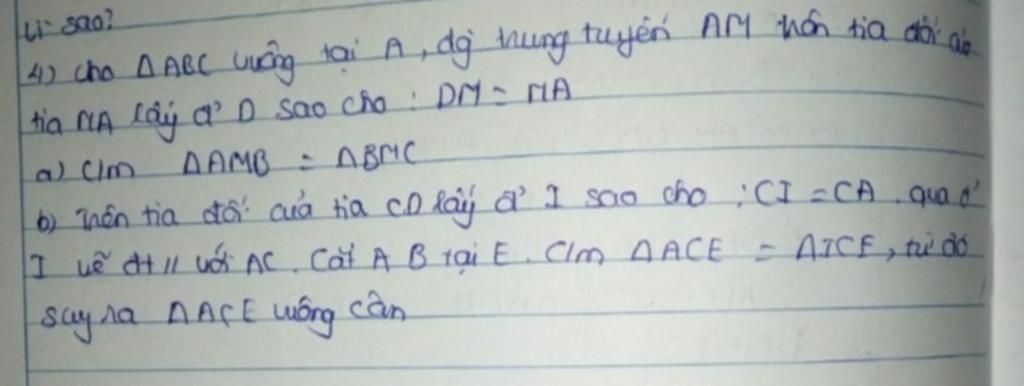 Lí sao?
4) cho ΔABC vuông tại A, dg trung tuyến AM trên tia đối của
tia MA lấy đ' D sao cho : DM = MA
a) C/m ΔAMB = ΔBMC
b) trên tia đối của tia CD lấy đ' I sao cho : CI = CA. qua đ'
I vẽ đt // với AC. Cắt A B tại E. C/m ΔACE = ΔICE, từ đó
suy ra ΔACE vuông cân